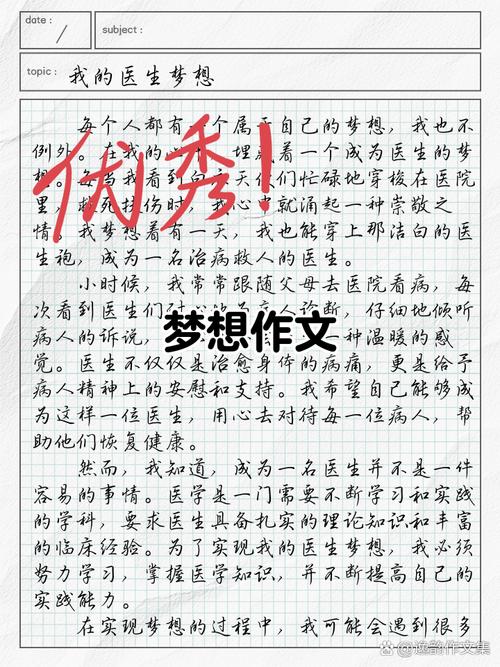 date :
subject :
topic : 我的医生梦想
每个人都有一个属于自己的梦想，我也不
例外。在我的心中，埋藏着一个成为医生的梦
想。每当我看到白衣天使们忙碌地穿梭在医院
里，救死扶伤时，我心中就涌起一种崇敬之
情。我梦想着有一天，我也能穿上那洁白的医
生袍，成为一名治病救人的医生。
优秀！
小时候，我常常跟随父母去医院看病，每
次看到医生们耐心地为病人诊断，仔细地倾听
病人的诉说，种温暖的感
梦想作文
觉。医生不仅仅是治愈身体的病痛，更是给予
病人精神上的安慰和支持。我希望自己能够成
为这样一位医生，用心去对待每一位病人，帮
助他们恢复健康。
然而，我知道，成为一名医生并不是一件
容易的事情。医学是一门需要不断学习和实践
的学科，要求医生具备扎实的理论知识和丰富
的临床经验。为了实现我的医生梦想，我必须
努力学习，掌握医学知识，并不断提高自己的
实践能力。
在实现梦想的过程中，我可能会遇到很多
逸韵作文集